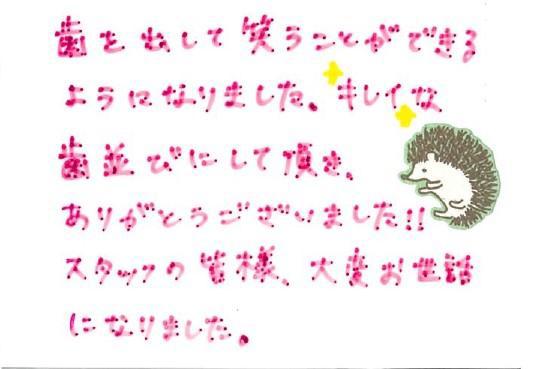 歯を出して笑うことができる
ようになりました。キレイな
歯並びにして頂き、
ありがとうございました!!
スタッフの皆様、大変お世話
になりました。